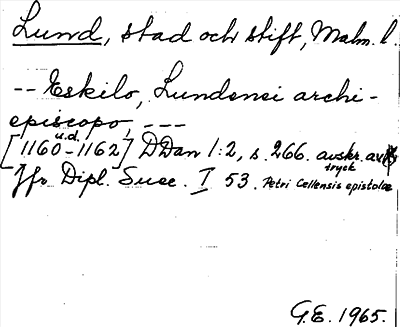 Lund, stad och stift, Malm. l.
-- Eskilo, Lundensi archi-
episcopo, ---
u.d.
[1160-1162] DDan 1:2, s. 266. avskr. av
tryck
Jfr Dipl. Suec. I 53. Petri Cellensis epistolae
G.E. 1965.